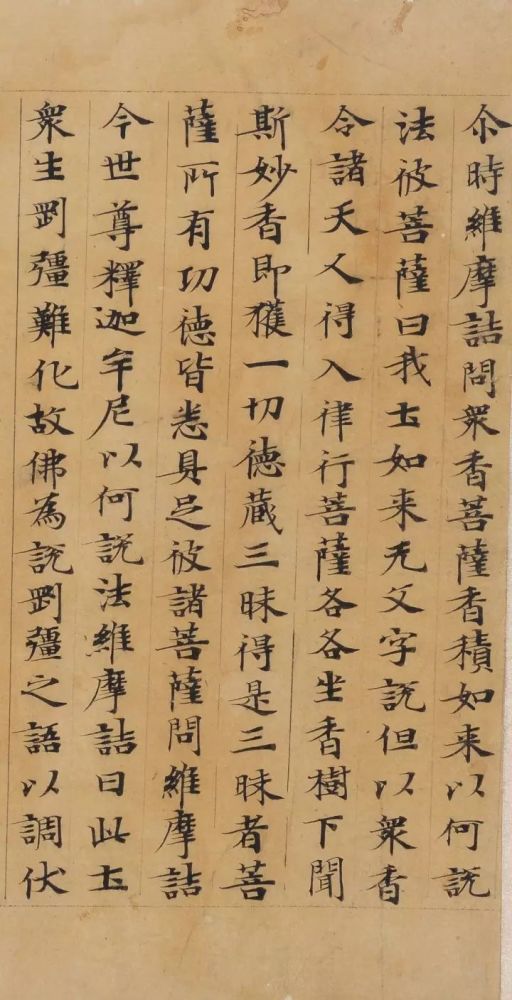 尒時維摩詰問衆香菩薩香積如来以何説
法彼菩薩曰我土如来无文字説但以衆香
令諸天人得入律行菩薩各各坐香樹下聞
斯妙香即獲一切德蔵三昧得是三昧者菩
薩所有功德皆悉具足彼諸菩薩問維摩詰
今世尊釋迦牟尼以何説法維摩詰曰此土
衆生剛彊難化故佛為説剛彊之語以調伏